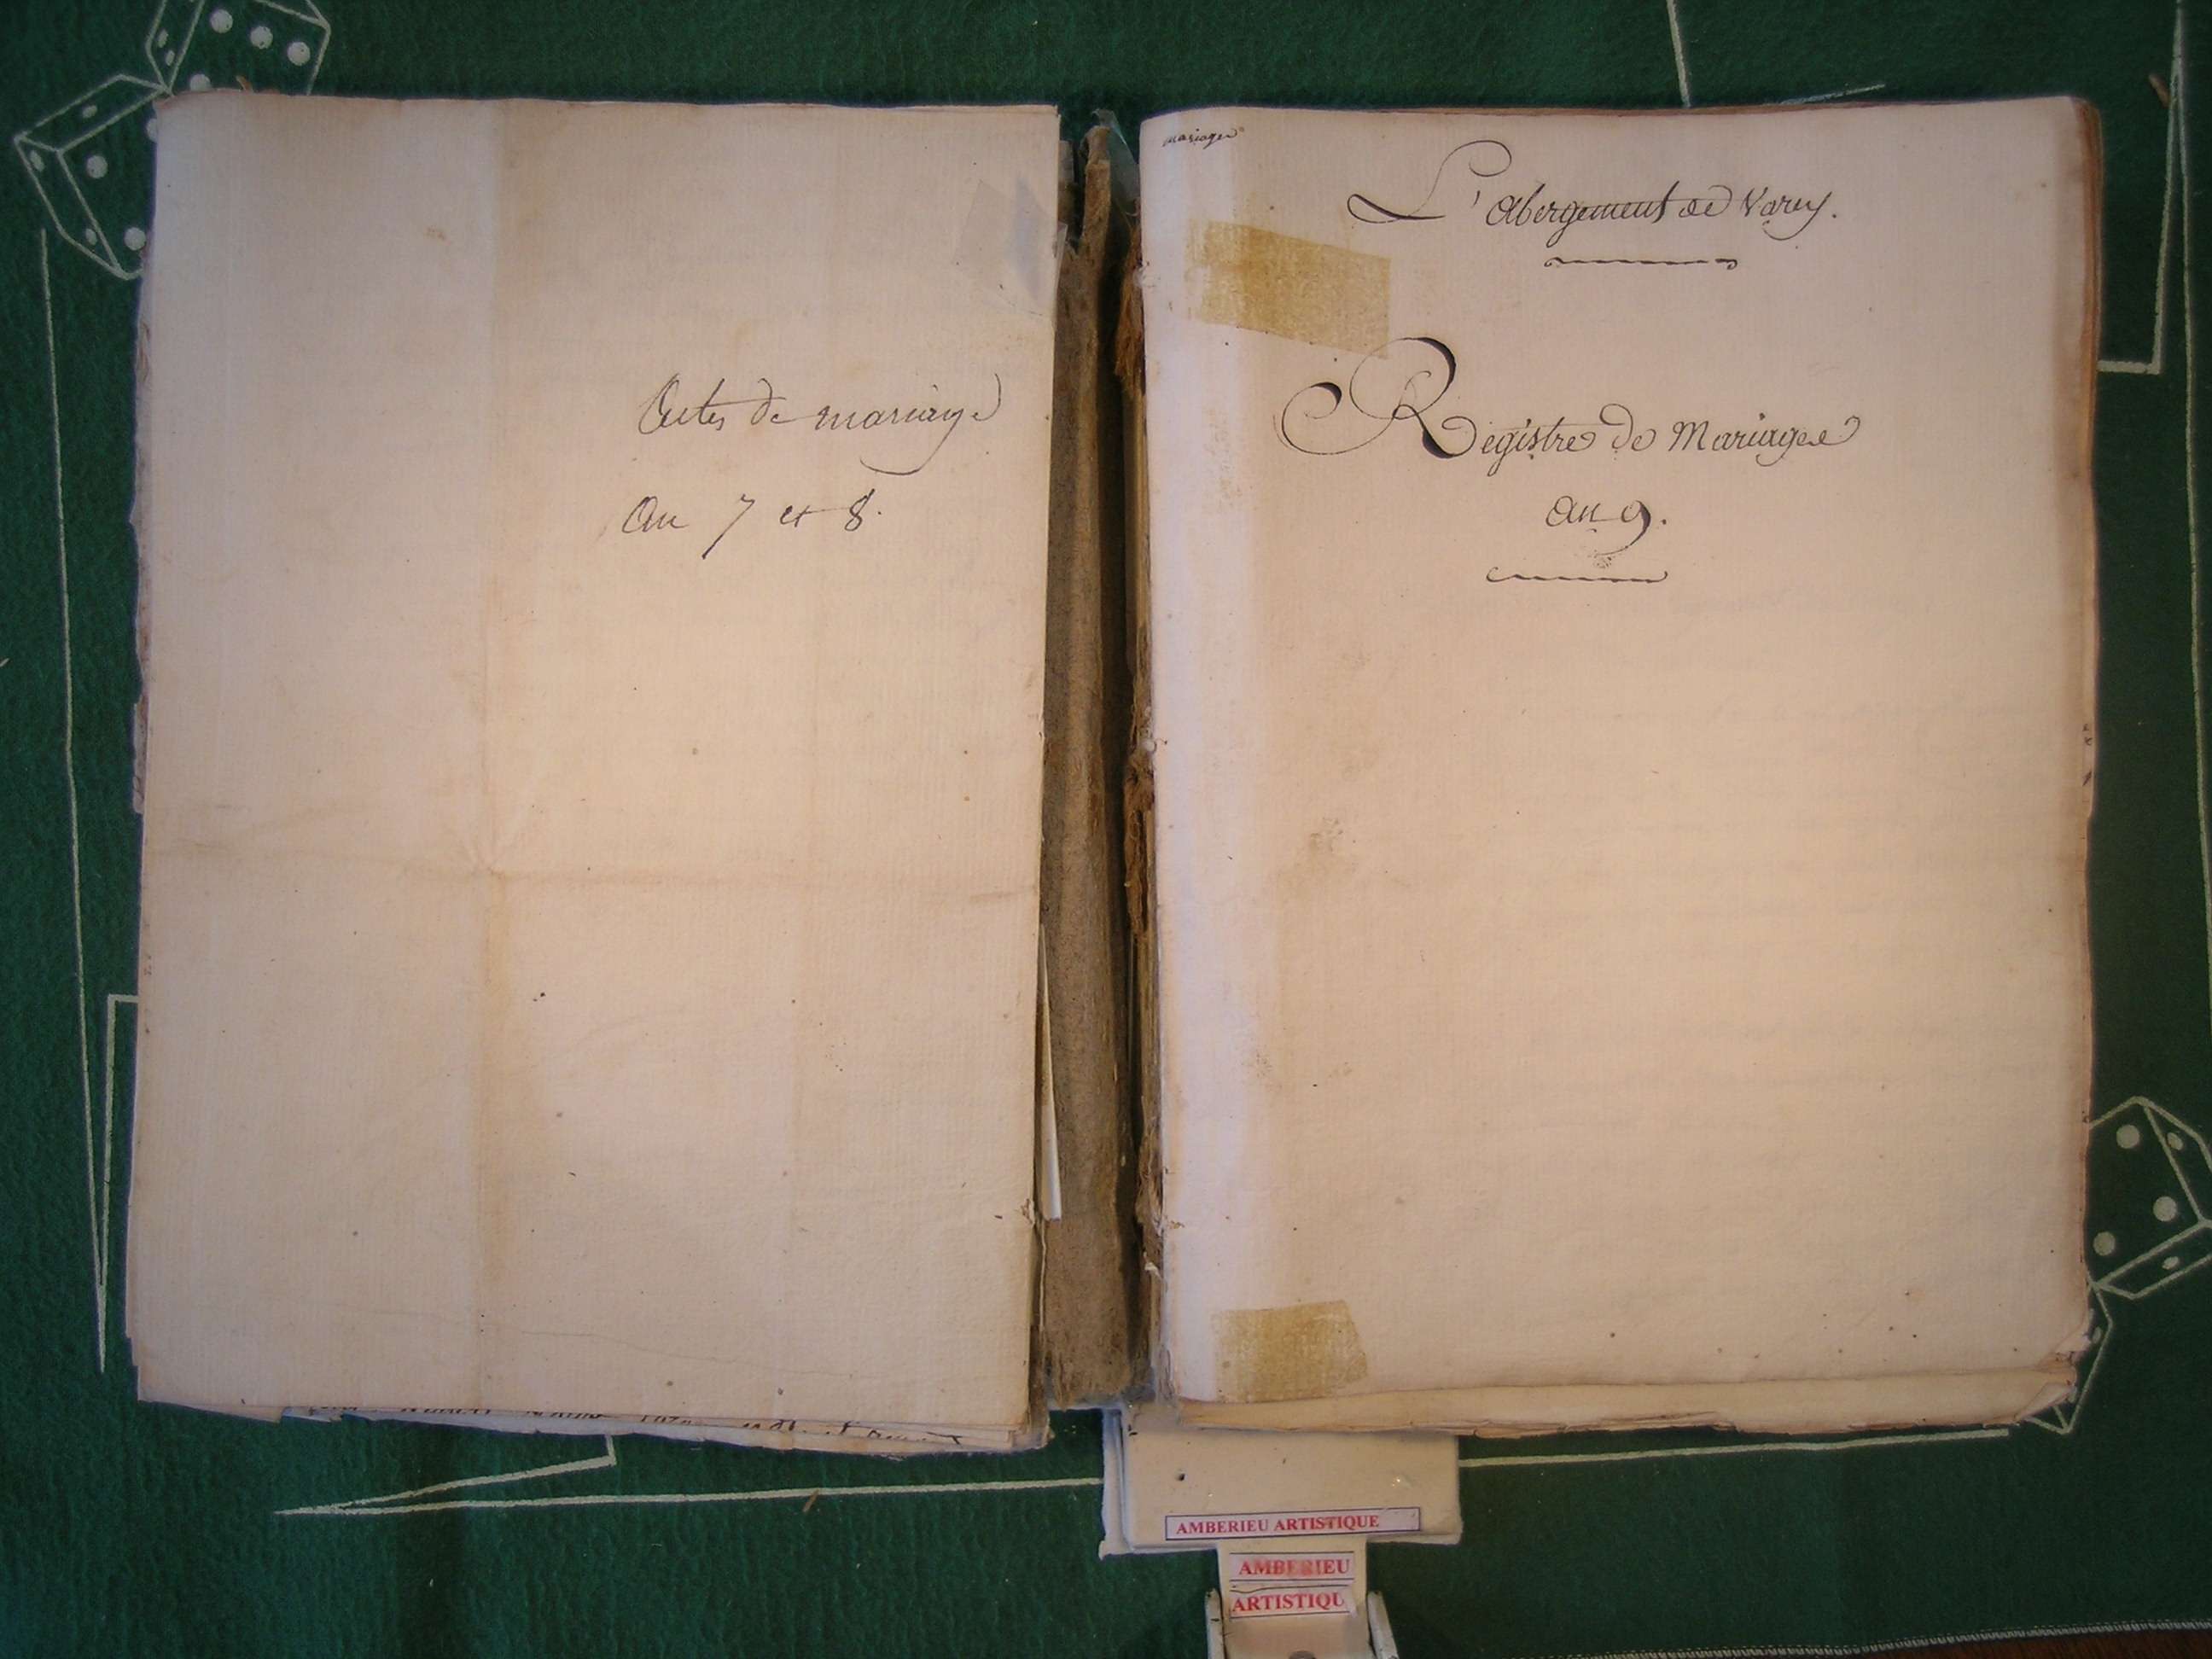 Actes de mariage
An 7 et 8.
mariages
L'abergement de Varey.
Registre de Mariages
an 9.
AMBERIEU ARTISTIQUE
AMBERIEU
ARTISTIQU